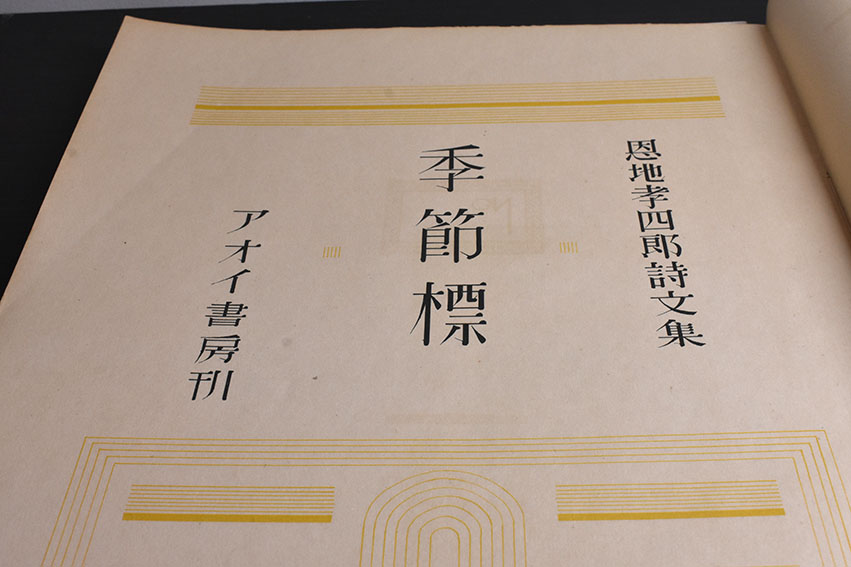 恩地孝四郎詩文集
季節標
アオイ書房刊